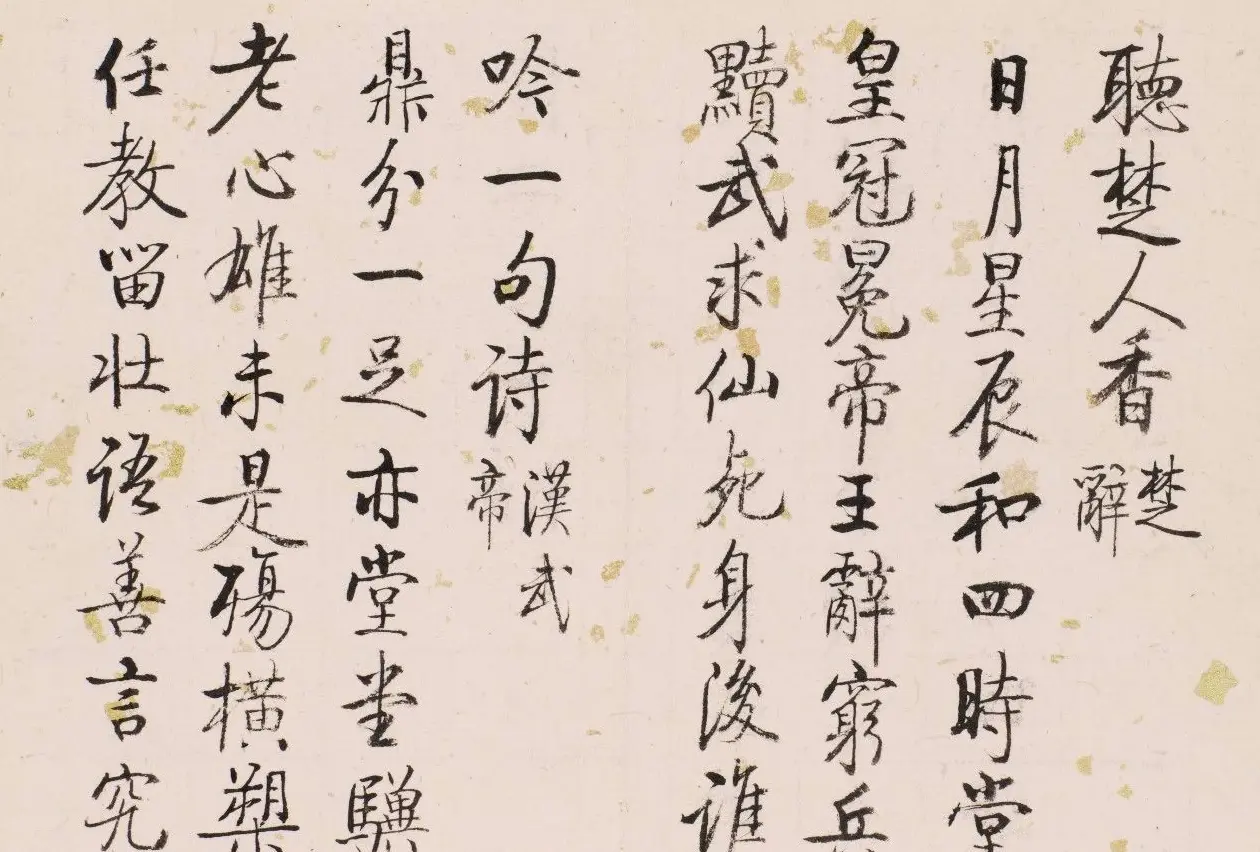 聽楚人香 楚辭
日月星辰和四時堂
皇冠冕帝王辭窮兵
黷武求仙死身後誰
吟一句詩 漢武帝
鼎分一足亦堂堂驥
老心雄未是殤橫槊
任教留壯語善言究